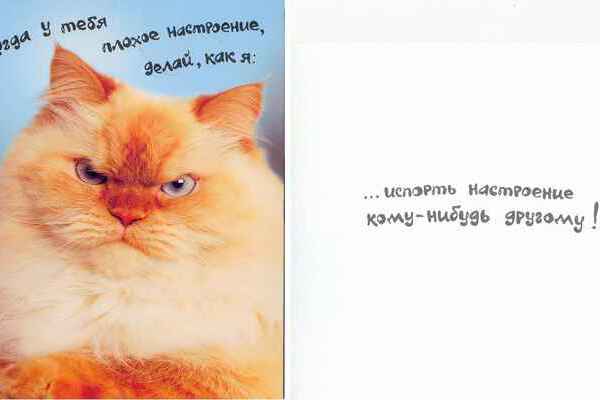 у тебя
плохое настроение,
делай, как я:
...испорть настроение
кому-нибудь другому!